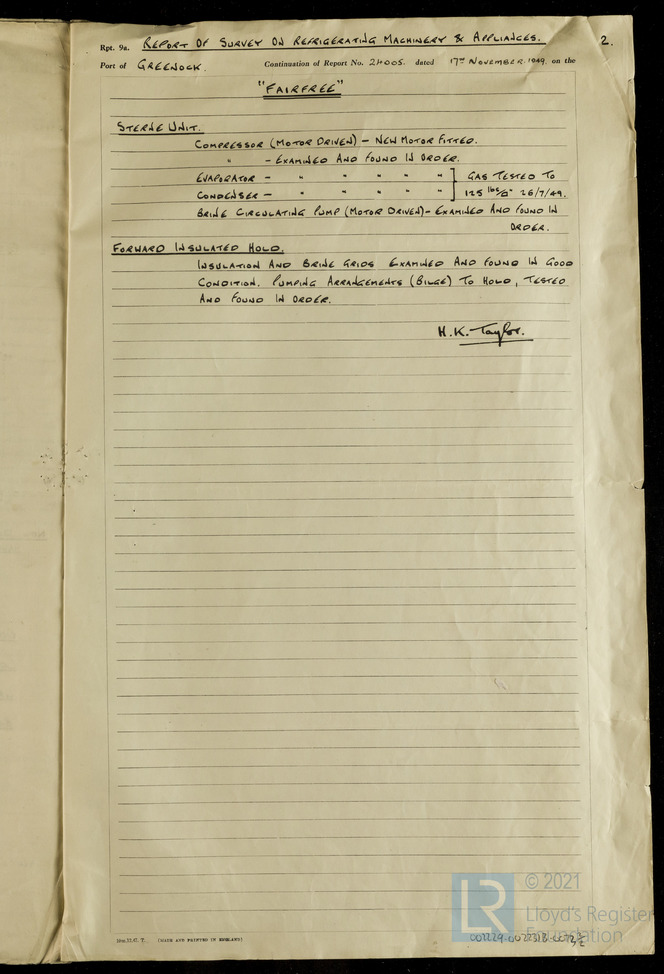 Rpt. 9a. REPORT OF SURVEY ON REFRIGERATING MACHINERY & APPLIANCES. 2.
Port of GREENOCK. Continuation of Report No. 24005. dated 17TH NOVEMBER. 1949. on the
"FAIRFREE"
STERNE UNIT.
COMPRESSOR (MOTOR DRIVEN) - NEW MOTOR FITTED.
" - EXAMINED AND FOUND IN ORDER.
EVAPORATOR - " " " " " } GAS TESTED TO
CONDENSER - " " " " " } 125 lbs/□" 26/7/49.
BRINE CIRCULATING PUMP (MOTOR DRIVEN) - EXAMINED AND FOUND IN
ORDER.
FORWARD INSULATED HOLD.
INSULATION AND BRINE GRIDS EXAMINED AND FOUND IN GOOD
CONDITION. PUMPING ARRANGEMENTS (BILGE) TO HOLD, TESTED
AND FOUND IN ORDER.
H.K. Taylor.
(MADE AND PRINTED IN ENGLAND)
© 2021
Lloyd's Register
Foundation